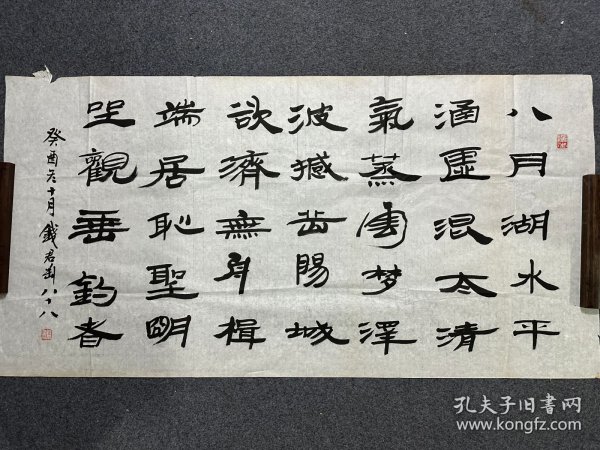 八月湖水平
涵虛混太清
氣蒸雲梦澤
波撼岳陽城
欲濟無舟楫
端居恥聖明
坐觀垂釣者
癸酉冬十月錢君匋八十八
孔夫子旧书网
www.kongfz.com